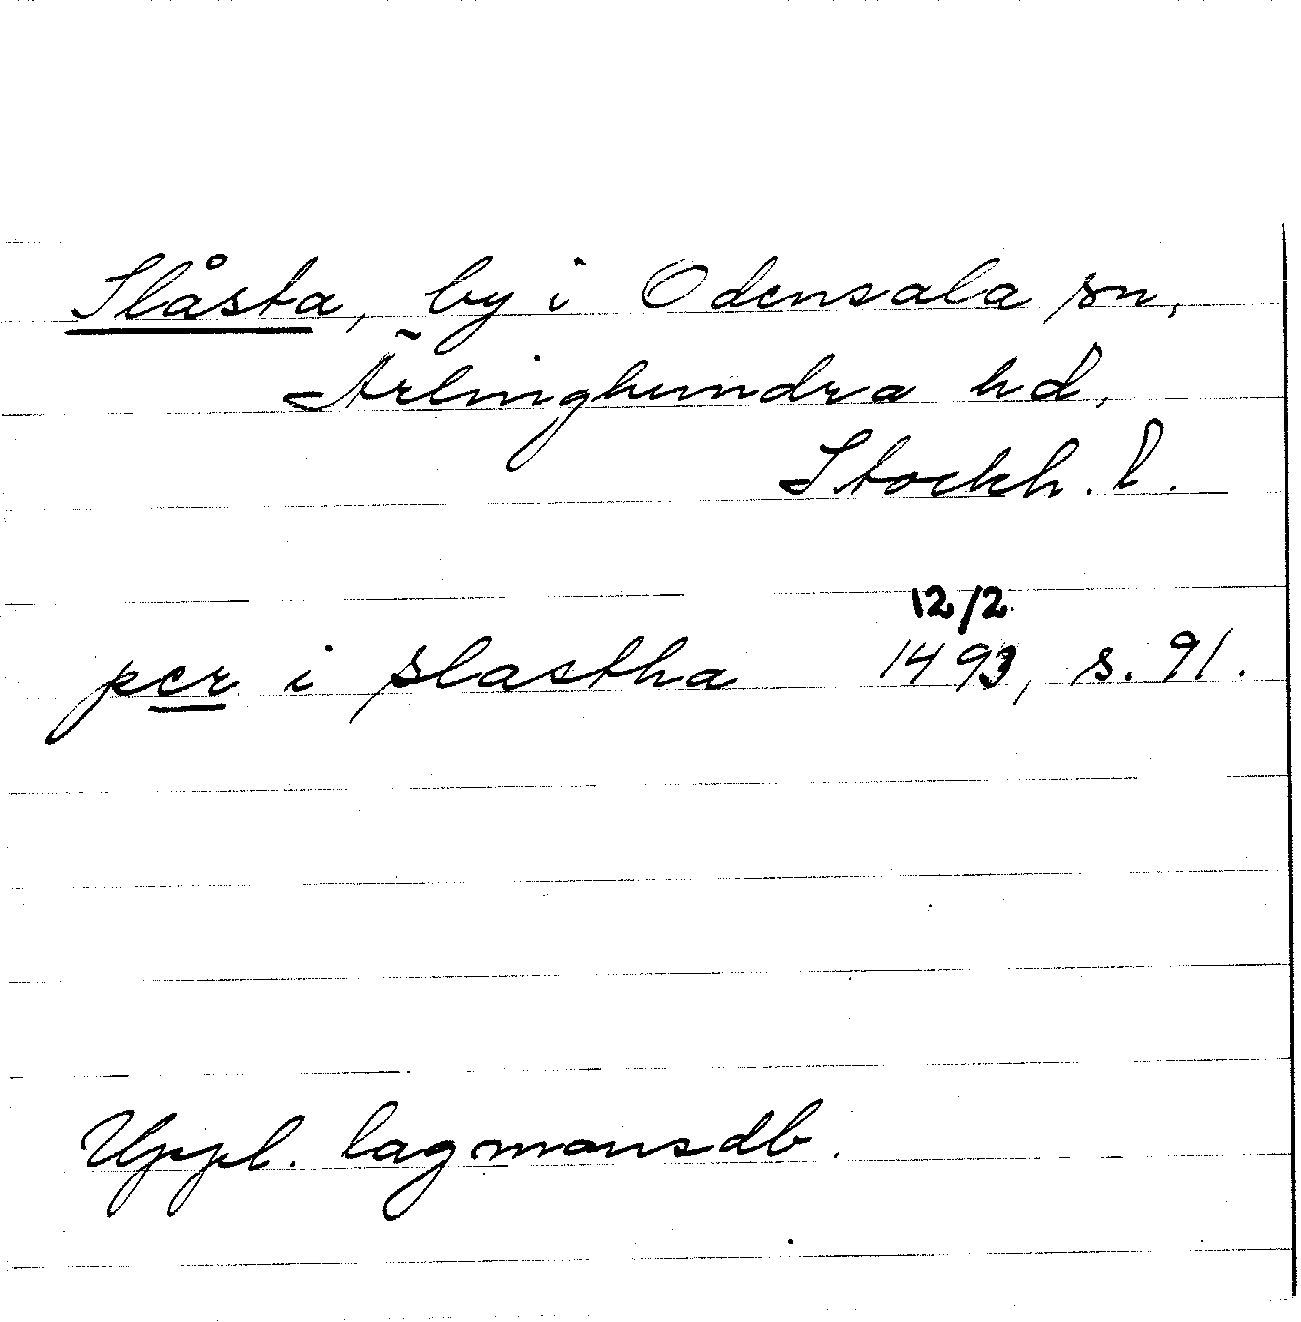 Slåsta, by i Odensala sn,
Ärlinghundra hd,
Stockh. l.
12/2
per i slastha 1493, s. 91.
Uppl. lagmansdb.